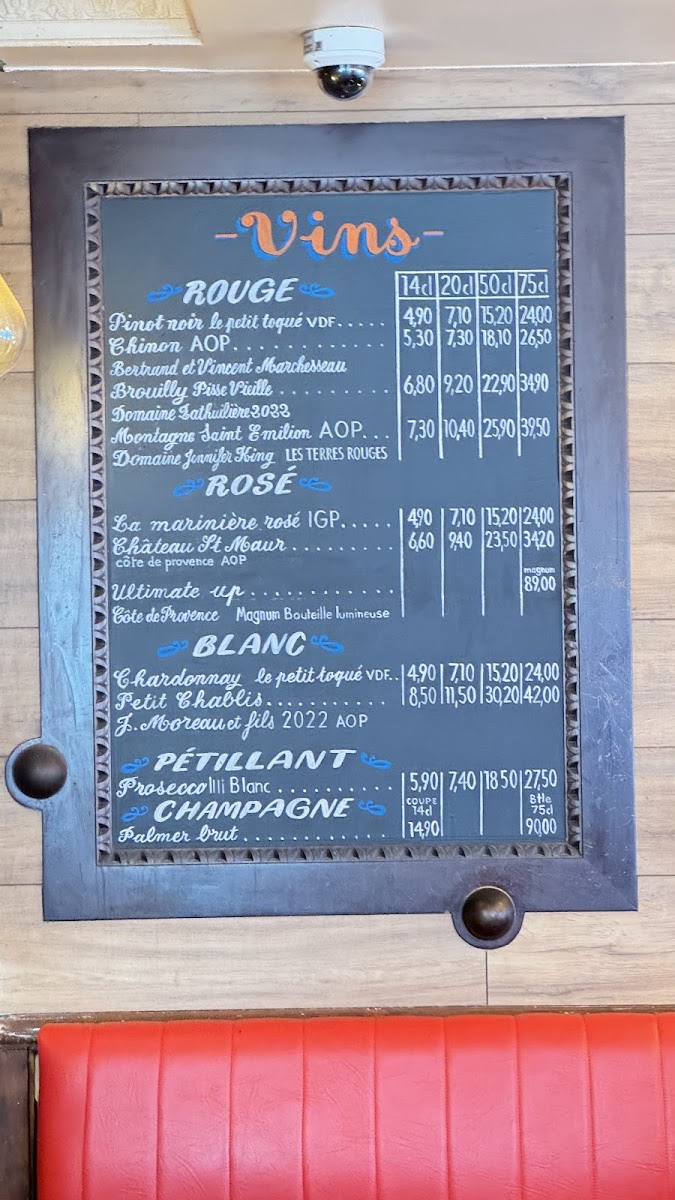 -Vins-
ROUGE 14cl 20cl 50cl 75cl
Pinot noir le petit toqué VDF..... 4,90 7,10 15,20 24,00
Chinon AOP............... 5,30 7,30 18,10 26,50
Bertrand et Vincent Marchesseau
Brouilly Pisse Vieille ......... 6,80 9,20 22,90 34,90
Domaine Lathuilière 2022
Montagne Saint Emilion AOP... 7,30 10,40 25,90 39,50
Domaine Jennifer King LES TERRES ROUGES
ROSÉ
La marinière rosé IGP..... 4,90 7,10 15,20 24,00
Château St Maur.......... 6,60 9,40 23,50 34,20
côte de provence AOP
magnum
Ultimate up............ 89,00
Côte de Provence Magnum Bouteille lumineuse
BLANC
Chardonnay le petit toqué VDF.. 4,90 7,10 15,20 24,00
Petit Chablis............ 8,50 11,50 30,20 42,00
J. Moreau et fils 2022 AOP
PÉTILLANT
Prosecco Blanc........... 5,90 7,40 18 50 27,50
CHAMPAGNE COUPE 14cl Btle 75cl
Palmer brut............... 14,90 90,00